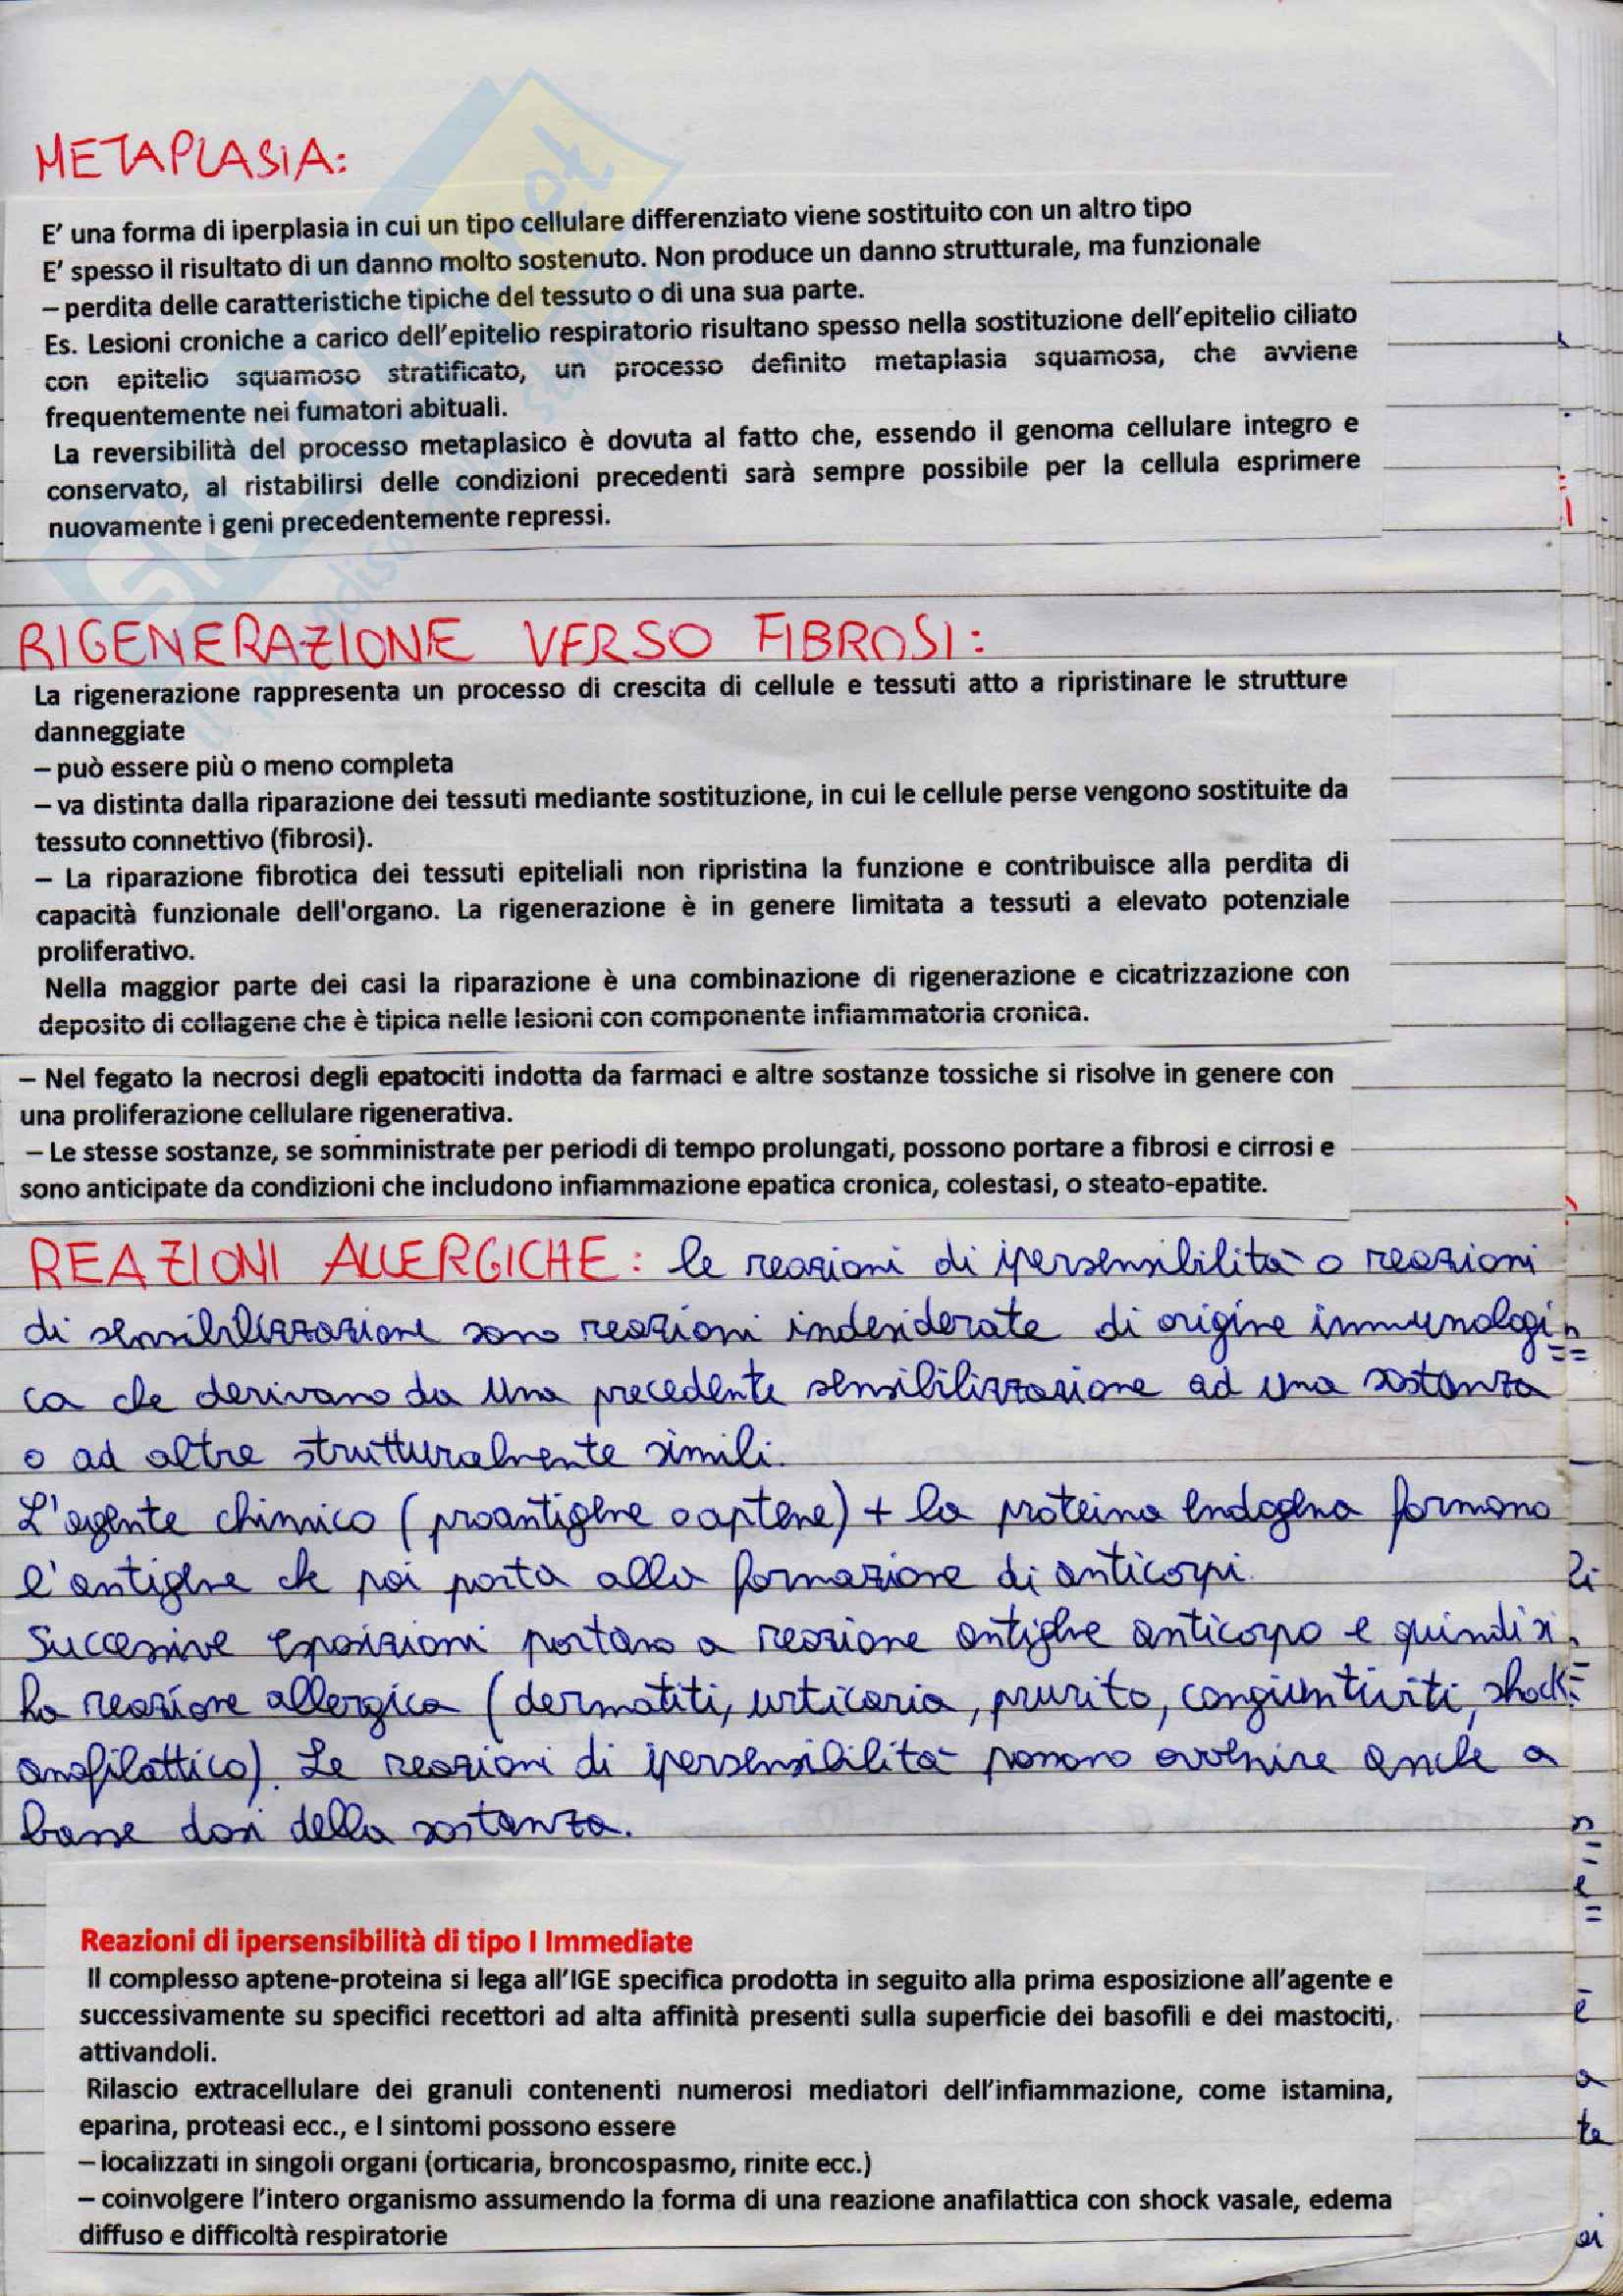 METAPLASIA:
E' una forma di iperplasia in cui un tipo cellulare differenziato viene sostituito con un altro tipo
E' spesso il risultato di un danno molto sostenuto. Non produce un danno strutturale, ma funzionale
– perdita delle caratteristiche tipiche del tessuto o di una sua parte.
Es. Lesioni croniche a carico dell'epitelio respiratorio risultano spesso nella sostituzione dell'epitelio ciliato
con epitelio squamoso stratificato, un processo definito metaplasia squamosa, che avviene
frequentemente nei fumatori abituali.
La reversibilità del processo metaplasico è dovuta al fatto che, essendo il genoma cellulare integro e
conservato, al ristabilirsi delle condizioni precedenti sarà sempre possibile per la cellula esprimere
nuovamente i geni precedentemente repressi.
RIGENERAZIONE VERSO FIBROSI:
La rigenerazione rappresenta un processo di crescita di cellule e tessuti atto a ripristinare le strutture
danneggiate
– può essere più o meno completa
– va distinta dalla riparazione dei tessuti mediante sostituzione, in cui le cellule perse vengono sostituite da
tessuto connettivo (fibrosi).
– La riparazione fibrotica dei tessuti epiteliali non ripristina la funzione e contribuisce alla perdita di
capacità funzionale dell'organo. La rigenerazione è in genere limitata a tessuti a elevato potenziale
proliferativo.
Nella maggior parte dei casi la riparazione è una combinazione di rigenerazione e cicatrizzazione con
deposito di collagene che è tipica nelle lesioni con componente infiammatoria cronica.
– Nel fegato la necrosi degli epatociti indotta da farmaci e altre sostanze tossiche si risolve in genere con
una proliferazione cellulare rigenerativa.
– Le stesse sostanze, se somministrate per periodi di tempo prolungati, possono portare a fibrosi e cirrosi e
sono anticipate da condizioni che includono infiammazione epatica cronica, colestasi, o steato-epatite.
REAZIONI ALLERGICHE: le reazioni di ipersensibilità o reazioni
di sensibilizzazione sono reazioni indesiderate di origine immunologi
ca che derivano da una precedente sensibilizzazione ad una sostanza
o ad altre strutturalmente simili.
L'agente chimico (proantigene o aptene) + la proteina endogena formano
l'antigene che poi porta alla formazione di anticorpi.
Successive esposizioni portano a reazione antigene anticorpo e quindi si
ha reazione allergica (dermatiti, urticaria, prurito, congiuntiviti, shock
anafilattico). Le reazioni di ipersensibilità possono avvenire anche a
basse dosi della sostanza.
Reazioni di ipersensibilità di tipo I Immediate
Il complesso aptene-proteina si lega all'IGE specifica prodotta in seguito alla prima esposizione all'agente e
successivamente su specifici recettori ad alta affinità presenti sulla superficie dei basofili e dei mastociti,
attivandoli.
Rilascio extracellulare dei granuli contenenti numerosi mediatori dell'infiammazione, come istamina,
eparina, proteasi ecc., e I sintomi possono essere
– localizzati in singoli organi (orticaria, broncospasmo, rinite ecc.)
– coinvolgere l'intero organismo assumendo la forma di una reazione anafilattica con shock vasale, edema
diffuso e difficoltà respiratorie